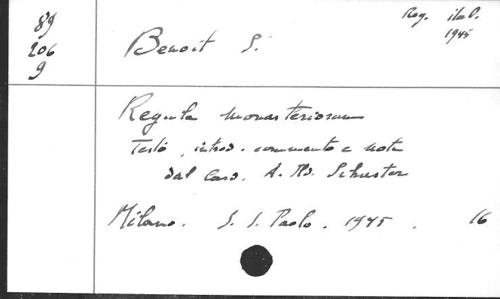 89
206
9
Reg. ital.
1945
Benoit S.
Regula monasteriorum
Testo, introd. commento e note
dal Card. A. Ild. Schuster
Milano. S. S. Paolo. 1945. 16